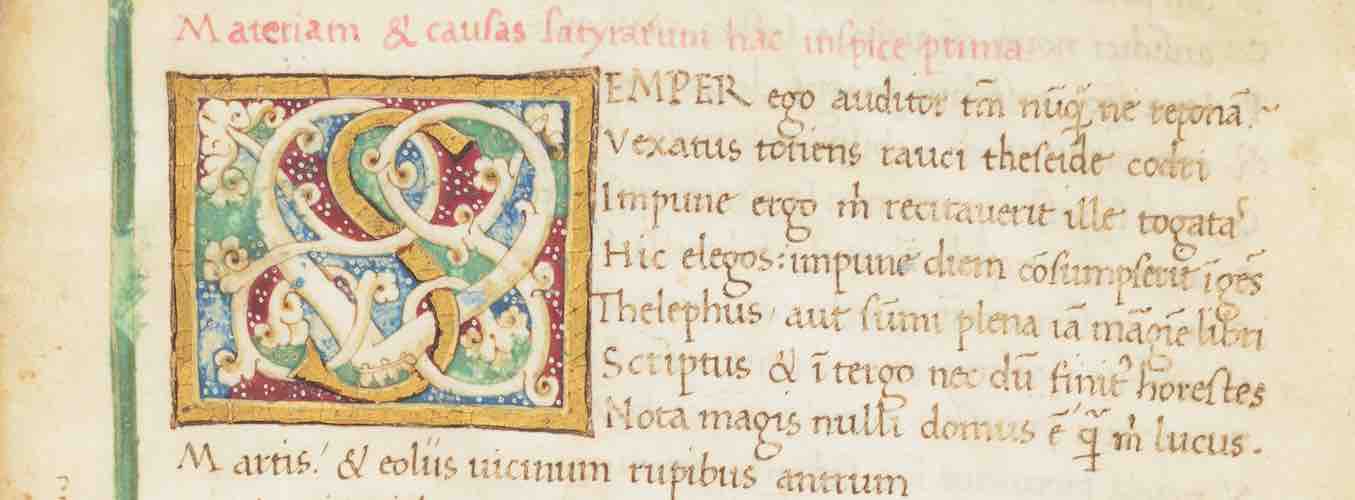 Materiam & causas satyrarum hac inspice prima
SEMPER ego auditor tm̄ nūq̄ ne reponā
Vexatus totiens rauci theseide codri
Impune ergo m̄ recitauerit ille togatas
Hic elegos: impune diem cōsumpserit īgēs
Thelephus, aut sūmi plena iā margine libri
Scriptus & ī tergo nec dū finitꝰ horestes
Nota magis nulli domus ē q̄ m̄ lucus.
Martis! & eoliis uicinum rupibus antrum